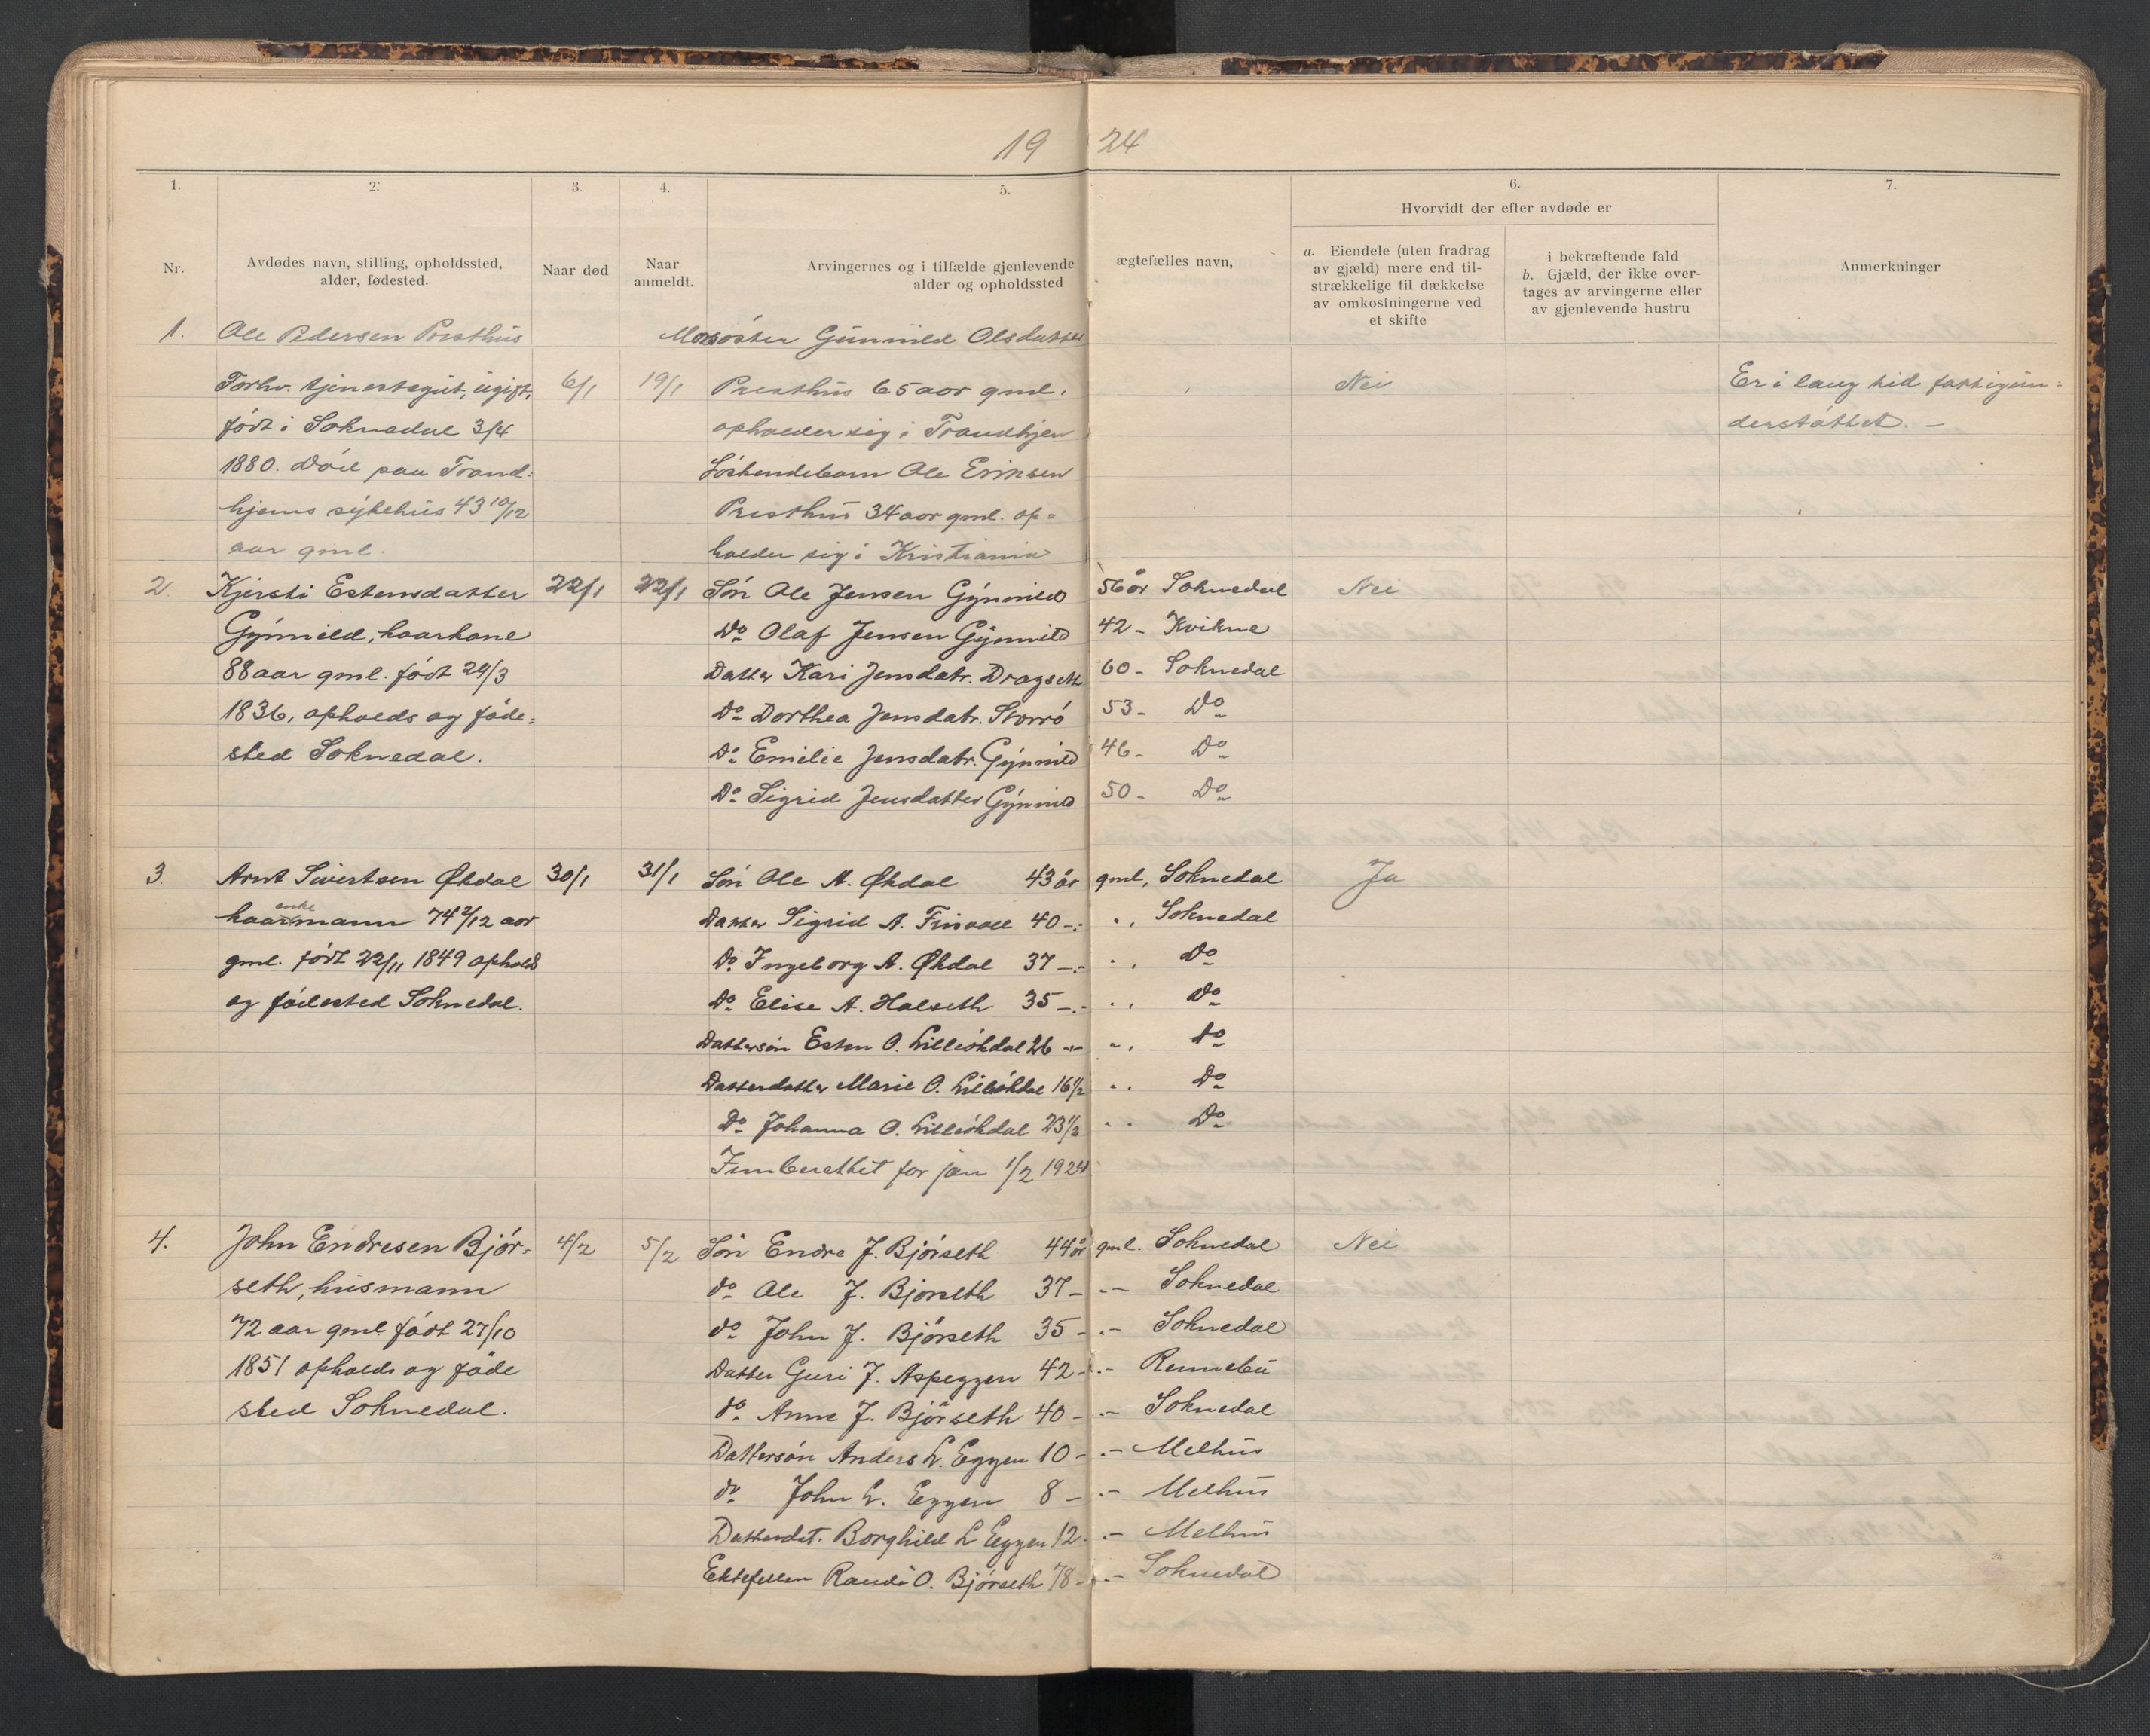 19 24
1. 2. 3. 4. 5. 6. 7.
Hvorvidt der efter avdøde er
Nr.
Avdødes navn, stilling, opholdssted,
alder, fødested.
Naar død
Naar
anmeldt.
Arvingernes og i tilfælde gjenlevende ægtefælles navn,
alder og opholdssted
a. Eiendele (uten fradrag
av gjæld) mere end til-
strækkelige til dækkelse
av omkostningerne ved
et skifte
i bekræftende fald
b. Gjæld, der ikke over-
tages av arvingerne eller
av gjenlevende hustru
Anmerkninger
1. Ole Pedersen Presthus Morsøster Gunnild Olsdatter
Forhv. tjenestegut, ugift, 6/1 19/1 Presthus 65 aar gml. Nei Er i lang tid fattigun=
født i Soknedal 3/4 opholder sig i Trondhjem derstøttet. –
1880. Død paa Trond= Søskendebarn Ole Eriksen
hjems sykehus 43 10/12 Presthus 34 aar gml. op=
aar gml. holder sig i Kristiania
2. Kjersti Estensdatter 22/1 22/1 Søn Ole Jensen Gynnild 56 år Soknedal Nei
Gynnild, kaarkone Do Olaf Jensen Gynnild 42 – Kvikne
88 aar gml. født 24/3 Datter Kari Jensdatr. Dragseth 60 – Soknedal
1836, opholds og føde= Do Dorthea Jensdatr. Storrø 53 – Do
sted Soknedal. Do Emilie Jensdatr. Gynnild 46 – Do
Do Sigrid Jensdatter Gynnild 50 – Do
3. Arnt Sivertsen Økdal 30/1 31/1 Søn Ole A. Økdal 43 år gml, Soknedal Ja
enke
kaarmann 74 2/12 aar Datter Sigrid A. Frisvoll 40 –:– „ Soknedal
gml. født 22/11 1849 opholds Do Ingeborg A. Økdal 37 –:– „ Do
og fødested Soknedal. Do Elise A. Halseth 35 –:– „ Do
Dattersøn Esten O. Lilleøkdal 26 –„– „ do
Datterdatter Marie O. Lilleøkdal 16 1/2 „ Do
Do Johanna O. Lilleøkdal 23 1/2 „ Do
Innberettet for jan 1/2 1924
4. John Endresen Bjør= 4/2 5/2 Søn Endre J. Bjørseth 44 år gml. Soknedal Nei
seth, husmann do Ole J. Bjørseth 37 – .– Soknedal
72 aar gml født 27/10 do John J. Bjørseth 35 – .– Soknedal
1851 opholds og føde Datter Guri J. Aspeggen 42 – .– Rennebu
sted Soknedal. do Anne J. Bjørseth 40 – .– Soknedal
Dattersøn Anders L. Eggen 10 – .– Melhus
do John L. Eggen 8 – .– Melhus
Datterdat. Borghild L Eggen 12 – .– Melhus
Ektefellen Randi O. Bjørseth 78 – .– Soknedal